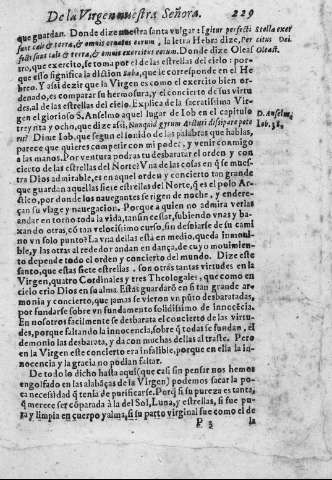 De la Virgen nuestra Señora. 229
que guardan. Donde dize nuestra santa vulgar: Igitur perfecti
sunt cæli & terra, & omnis ornatus eorum, la letra Hebra dize, Per
fecti sunt cæli & terra, & omnis exercitus eorum. Donde dize Oleas
tro, que exercito, se toma por el de las estrellas del cielo: por-
que esso significa la diction Saba, que le corresponde en el He
breo. Y assi dezir que la Virgen es como el exercito bien or-
denado, es comparar su hermosura, y el concierto de sus virtu
des, al de las estrellas del cielo. Explica de la sacratissima Vir-
gen el glorioso S. Anselmo aquel lugar de Iob en el capitulo
treynta y ocho, que dize assi, Nunquid gyrum Arcturi dissipare pote
ris? Di me Iob, que segun el sonido de las palabras que hablas,
parece que quieres competir con mi poder, y venir conmigo
a las manos. Por ventura podras tu desbaratar el orden y con
cierto de las estrellas del Norte? Vna de las cosas en q̃ se mues-
tra Dios admirable, es en aquel orden y concierto tan grande
que guardan aquellas siete estrellas del Norte, q̃ es el polo Ar
stico, por donde los nauegantes se rigen de noche, y endere-
çan su viage y nauegacion. Porque a quien no admira verlas
andar en torno toda la vida, tan sin cessar, subiendo vnas y ba-
xando otras, cō tan velocissimo curso, sin desuiarse de su cami
no vn solo punto? La vna dellas está en medio, queda é inmoui-
ble, y las otras al rededor andan en dança, de cuyo mouimien-
to depende todo el orden y concierto del mundo. Dize este
santo, que estas siete estrellas, son otras tantas virtudes en la
Virgen, quatro Cordinales y tres Theologales, que como en
cielo crio Dios en su alma. Estas guardarō en si tan grande ar
monia y concierto, que jamas se vieron vn pūto desbaratadas,
por fundarse sobre vn fundamento solidissimo de innocēcia.
En nosotros facilmente se desbarata el concierto de las virtu-
des, porque faltando la innocencia, sobre q̃ todas se fundan, el
demonio las desbarata, y da con muchas dellas al traste. Pero
en la Virgen este concierto era infalible, porque en ella la in-
nocencia y la gracia no podian faltar.
De todo lo dicho hasta aqui (que casi sin pensar nos hemos
engolfado en las alabāças de la Virgen) podemos sacar la po-
ca necesidad q̃ tenia de purificarse. Porq̃ si su pureza es tanta,
q̃ merece ser cōparada à la del Sol, Luna, y estrellas, si fue pu-
ra y limpia en cuerpo y alma, si su parto virginal fue como el de
P 3 la
Stella exer
citus Dei.
Oleast.
D. Anselm.
Iob. 38.